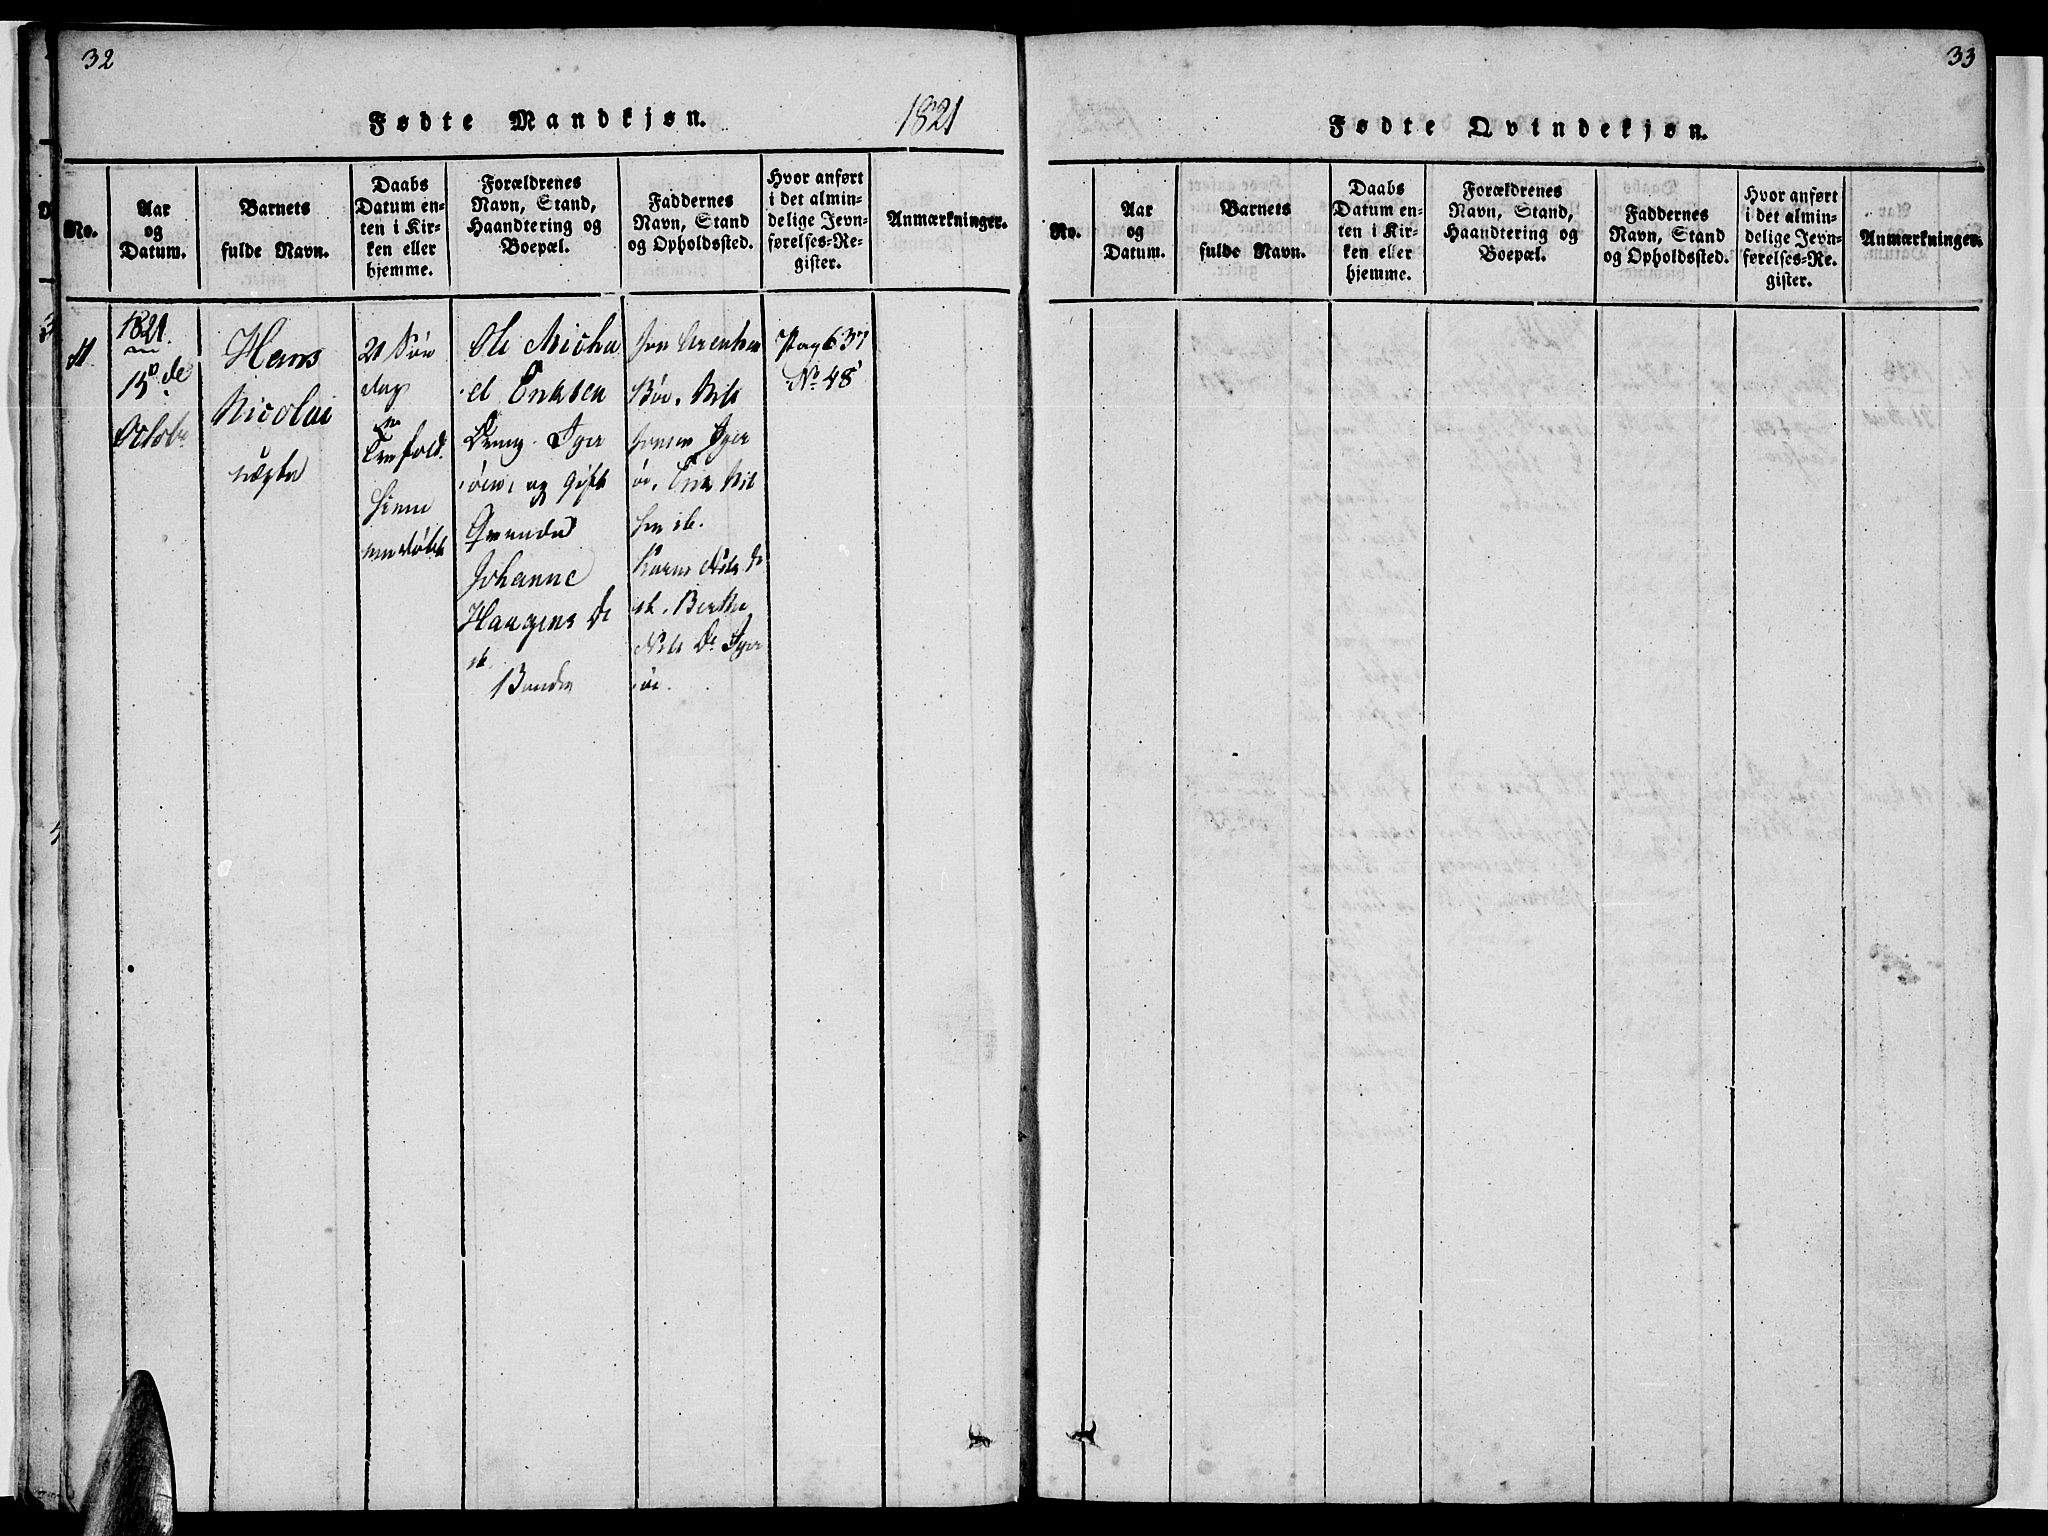 32
Fødte Mandkjøn.
1821
No.
Aar
og
Datum.
Barnets
fulde Navn.
Daabs
Datum en-
ten i Kir-
ken eller
hjemme.
Forældrenes
Navn, Stand,
Haandtering og
Boepæl.
Faddernes
Navn, Stand
og Opholdssted.
Hvor anført
i det almin-
delige Jevn-
førelses-Re-
gister.
Anmærkninger.
1821
15de
Octobr
Hans
Nicolai
uægte
21 Søn
dag
hjemme
døbt
Ole Micha
el Eriksen
Dreng
og Gift
Johanne
Haagens D
ib.
Bønder
Jon
Nils
Jonsen
Erik Nil
sen ib.
Karen Nils D
ib. Berthe
Nils D
Pag 637
No 48
33
Fødte Qvindekjøn.
No.
Aar
og
Datum.
Barnets
fulde Navn.
Daabs
Datum en-
ten i Kir-
ken eller
hjemme.
Forældrenes
Navn, Stand,
Haandtering og
Boepæl.
Faddernes
Navn, Stand
og Opholdssted.
Hvor anført
i det almin-
delige Jevn-
førelses-Re-
gister.
Anmærkninger.